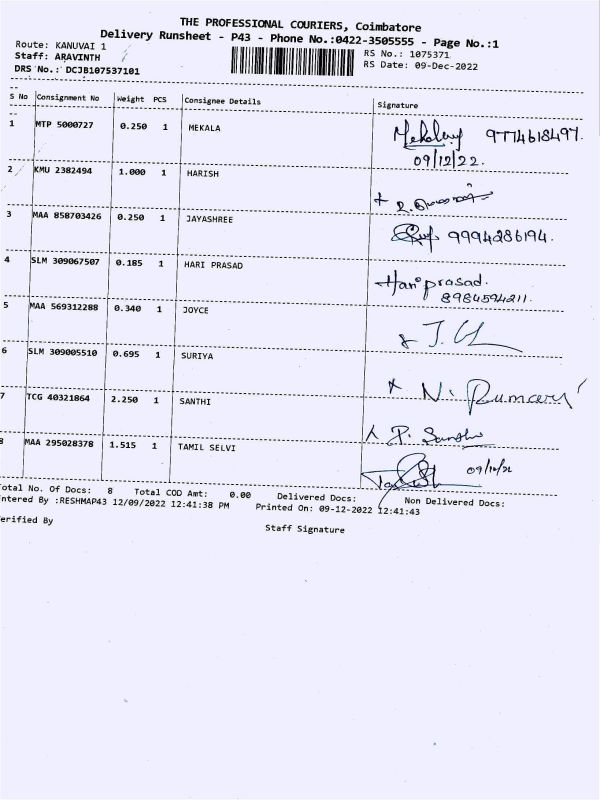 THE PROFESSIONAL COURIERS, Coimbatore
Delivery Runsheet - P43 - Phone No.:0422-3505555 - Page No.:1
Route: KANUVAI 1
RS No.: 1075371
Staff: ARAVINTH
RS Date: 09-Dec-2022
DRS No.: DCJB107537101
S No Consignment No Weight PCS Consignee Details Signature
1 MTP 5000727 0.250 1 MEKALA Mekala 9774618497.
09/12/22.
2 KMU 2382494 1.000 1 HARISH
3 MAA 858703426 0.250 1 JAYASHREE 9994286194.
4 SLM 309067507 0.185 1 HARI PRASAD Hari prasad.
8984594211.
5 MAA 569312288 0.340 1 JOYCE
6 SLM 309005510 0.695 1 SURIYA
7 TCG 40321864 2.250 1 SANTHI
8 MAA 295028378 1.515 1 TAMIL SELVI
otal No. Of Docs: 8 Total COD Amt: 0.00 Delivered Docs: Non Delivered Docs:
ntered By :RESHMAP43 12/09/2022 12:41:38 PM Printed On: 09-12-2022 12:41:43
erified By
Staff Signature